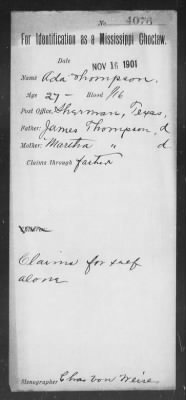 No. 4076
For Identification as a Mississippi Choctaw.
Date NOV 16 1901
Name Ada Thompson.
Age 27 - Blood 1/16
Post Office, Sherman, Texas,
Father: James Thompson, d
Mother: Martha " d
Claims through father
Claims for self
alone
Stenographer Chas von Weise